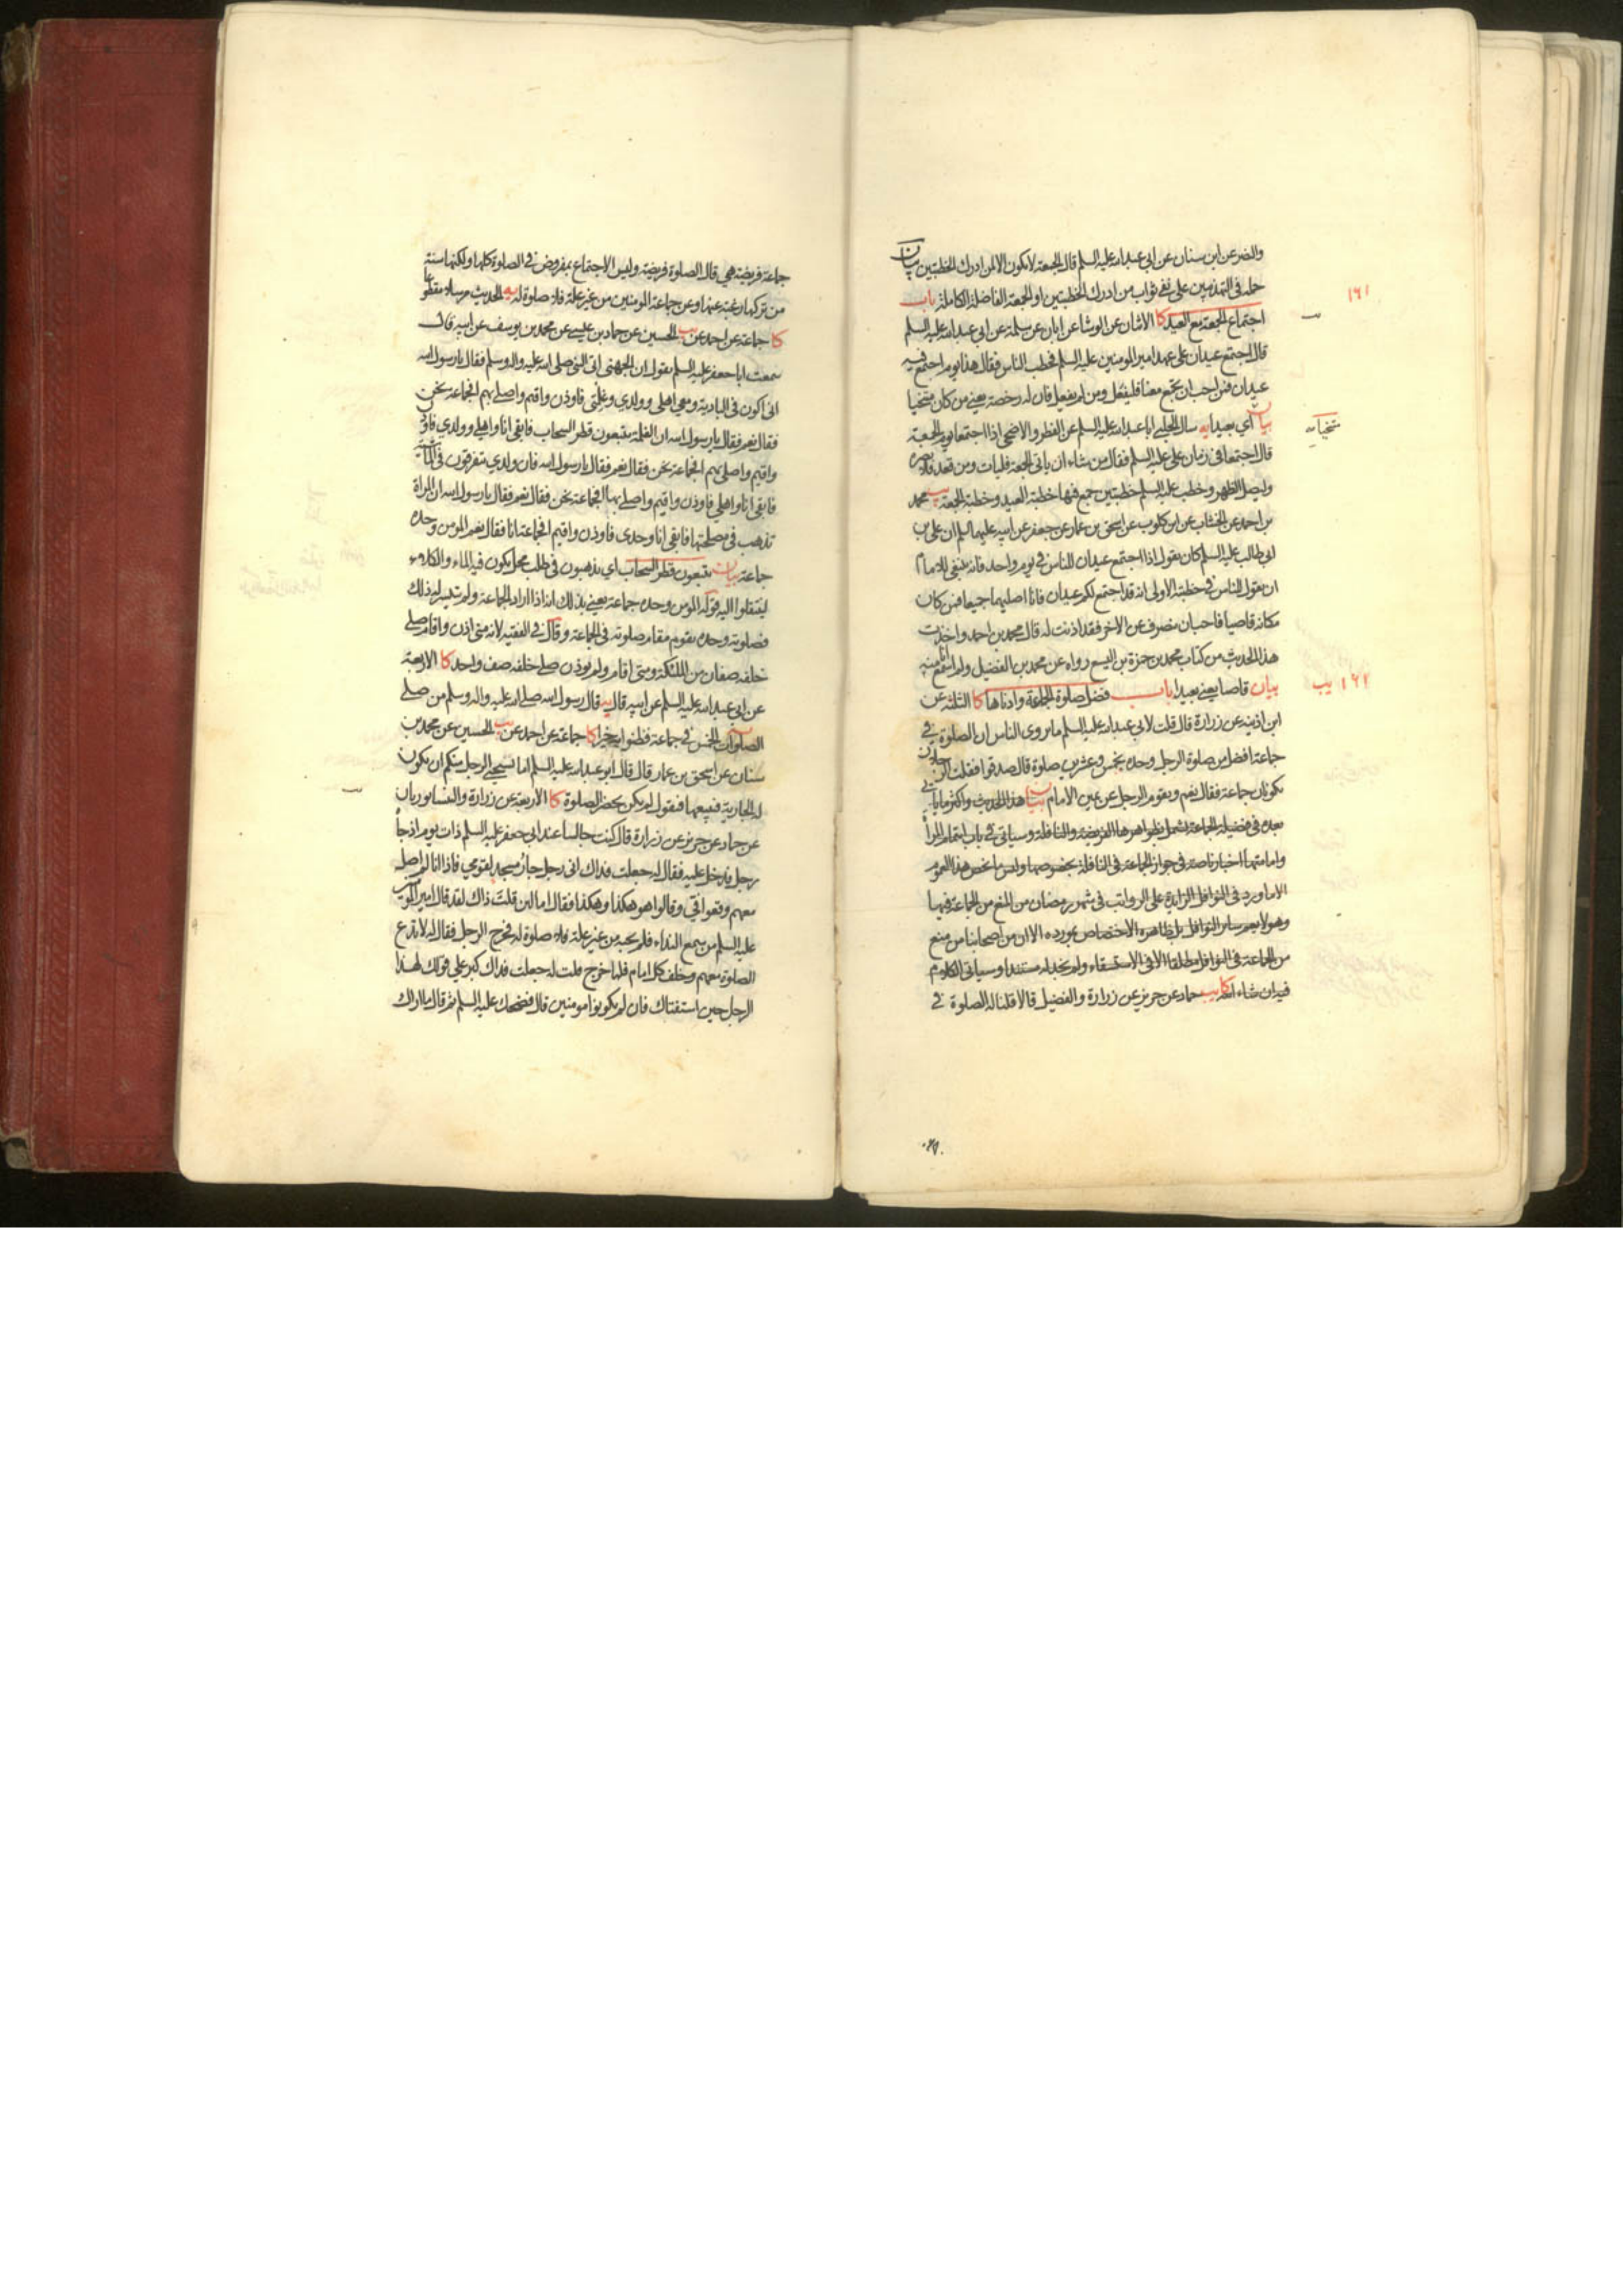 والنضر عن ابن سنان عن ابي عبد الله عليه السلم قال الجمعة لا يكون الا لمن ادرك الخطبتين بيان
حمله في التهذيبين على نفي ثواب من ادرك الخطبتين او الجمعة الفاضلة الكاملة باب
اجتماع الجمعة مع العيد كا الاثنان عن الوشا عن ابان عن سلمة عن ابي عبد الله عليه السلم
قال اجتمع عيدان على عهد امير المومنين عليه السلم فخطب الناس فقال هذا يوم اجتمع فيه
عيدان فمن احب ان يجمع معنا فليفعل ومن لم يفعل فان له رخصة يعني من كان متنحيا
بيان اي بعيدا يه سال الحلبي ابا عبد الله عليه السلم عن الفطر والاضحى اذا اجتمعا يوم الجمعة
قال اجتمعا في زمان علي عليه السلم فقال من شاء ان ياتي الجمعة فليات ومن قعد فلا يضره
وليصل الظهر وخطب عليه السلم خطبتين جمع فيها خطبة العيد وخطبة الجمعة يب محمد
بن احمد عن الخشاب عن ابن كلوب عن اسحق بن عمار عن جعفر عن ابيه عليهما السلم ان علي بن
ابي طالب عليه السلم كان يقول اذا اجتمع عيدان للناس في يوم واحد فانه ينبغي للامام
ان يقول للناس في خطبته الاولى انه قد اجتمع لكم عيدان فانا اصليهما جميعا فمن كان
مكانه قاصيا فاحب ان ينصرف عن الاخر فقد اذنت له قال محمد بن احمد واخذت
هذا الحديث من كتاب محمد بن حمزة بن اليسع رواه عن محمد بن الفضيل ولم اسمع انا منه
بيان قاصيا يعني بعيدا باب فضل صلوة الجماعة وادناها كا الثلثة عن
ابن اذينه عن زرارة قال قلت لابي عبد الله عليه السلم ما يروى الناس ان الصلوة في
جماعة افضل من صلوة الرجل وحده بخمس وعشرين صلوة قال صدقوا فقلت الرجلان
يكونان جماعة فقال نعم ويقوم الرجل عن يمين الامام بيان هذا الحديث واكثر ما ياتي
بعده في فضيلة الجماعة يشمل بظواهرها الفريضة والنافلة وسياتي في باب ايتمام المرأ
وامامتها اخبار ناصة في جواز الجماعة في النافلة بخصوصها وليس ما يخص هذا العموم
الا ما ورد في النوافل الزايدة على الرواتب في شهر رمضان من المنع من الجماعة فيها
وهو لا يعم ساير النوافل بل ظاهره الاختصاص بمورده الا ان من اصحابنا من منع
من الجماعة في النوافل مطلقا الا في الاستسقاء ولم نجد له مستندا وسياتي الكلام
فيه ان شاء الله كا يب حماد عن حريز عن زرارة والفضيل قالا قلنا له الصلوة في
جماعة فريضة هي قال الصلوة فريضة وليس الاجتماع بمفروض في الصلوة كلها ولكنها سنة
من تركها رغبة عنها وعن جماعة المومنين من غير علة فلا صلوة له يه الحديث مرسلا مقطوعا
كا جماعة عن احمد عن يب الحسين عن حماد بن عيسى عن محمد بن يوسف عن ابيه قال
سمعت ابا جعفر عليه السلم يقول ان الجهني اتى النبي صلى الله عليه واله وسلم فقال يا رسول الله
اني اكون في البادية ومعي اهلي وولدي وغلمتي فاوذن واقيم واصلي بهم افجماعة نحن
فقال نعم فقال يا رسول الله ان الغلمة يتبعون قطر السحاب فابقى انا واهلي وولدي فاوذن
واقيم واصلي بهم افجماعة نحن فقال نعم فقال يا رسول الله فان ولدي يتفرقون في الماشية
فابقى انا واهلي فاوذن واقيم واصلي بها افجماعة نحن فقال نعم فقال يا رسول الله ان المراة
تذهب في مصلحتها فابقى انا وحدي فاوذن واقيم افجماعة انا فقال نعم المومن وحده
جماعة بيان يتبعون قطر السحاب اي يذهبون في طلب محل يكون فيه الماء والكلاء
لينتقلوا اليه قوله المومن وحده جماعة يعني بذلك انه اذا اراد الجماعة ولم تتيسر له ذلك
فصلوته وحده يقوم مقام صلوته في الجماعة وقال في الفقيه لانه متى اذن واقام صلى
خلفه صفان من الملئكة ومتى اقام ولم يوذن صلى خلفه صف واحد كا الاربعة
عن ابي عبد الله عليه السلم عن ابيه قال يه قال رسول الله صلى الله عليه واله وسلم من صلى
الصلوات الخمس في جماعة فظنوا به خيرا كا جماعة عن احمد عن يب الحسين عن محمد بن
سنان عن اسحق بن عمار قال قال ابو عبد الله عليه السلم اما يستحيي الرجل منكم ان يكون
له الجارية فيبيعها فتقول لم يكن يحضر الصلوة كا الاربعة عن زرارة والنيسابوريان
عن حماد عن حريز عن زرارة قال كنت جالسا عند ابي جعفر عليه السلم ذات يوم اذ جاءه
رجل فدخل عليه فقال له جعلت فداك اني رجل جار مسجد لقومي فاذا انا لم اصل
معهم وقعوا في وقالوا هو هكذا وهكذا فقال اما لئن قلت ذاك لقد قال امير المومنين
عليه السلم من سمع النداء فلم يجبه من غير علة فلا صلوة له فخرج الرجل فقال له لا تدع
الصلوة معهم وخلف كل امام فلما خرج قلت له جعلت فداك كبر علي قولك لهذا
الرجل حين استفتاك فان لم يكونوا مومنين قال فضحك عليه السلم ثم قال ما اراك